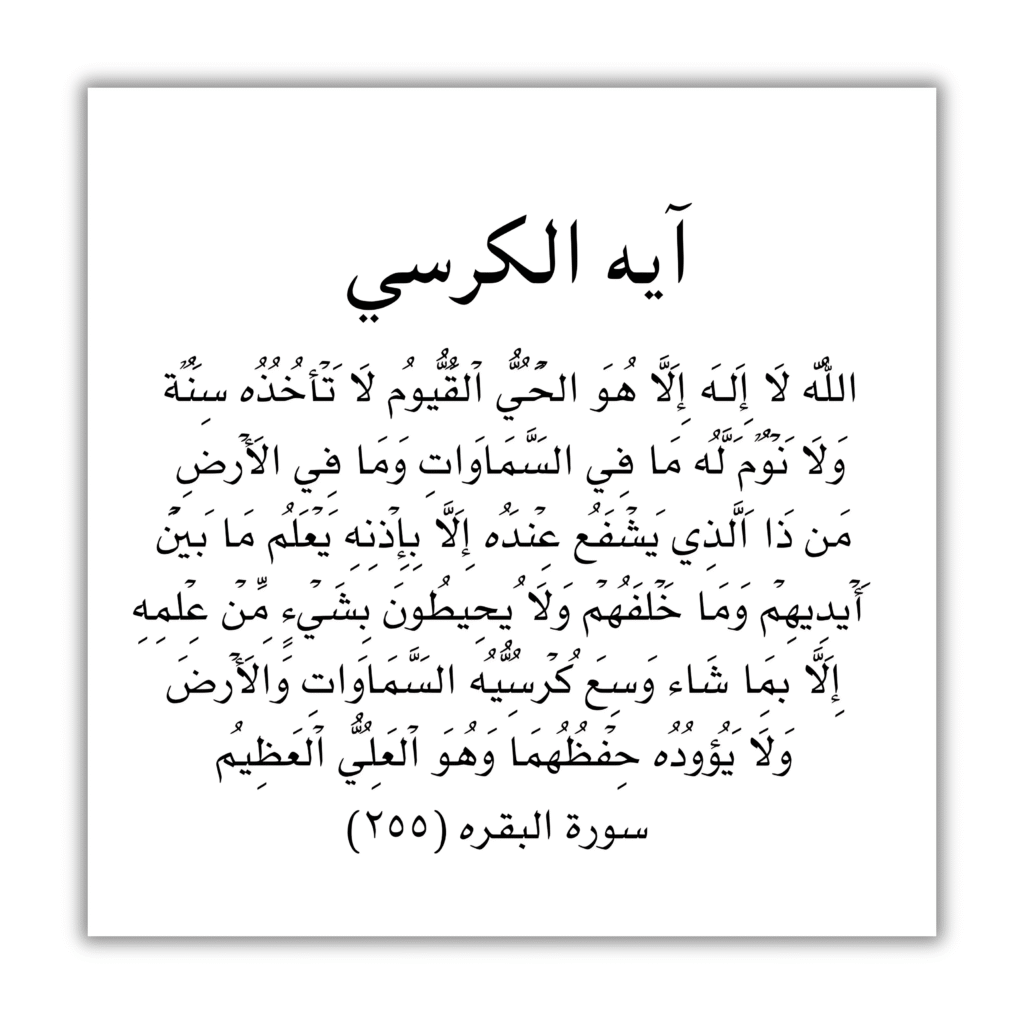 آيه الكرسي
اللَّهُ لَا إِلَهَ إِلَّا هُوَ الحَيُّ الْقَيُّومُ لَا تَأْخُذُهُ سِنَةٌ
وَلَا نَوْمٌ لَّهُ مَا فِي السَّمَاوَاتِ وَمَا فِي الأَرْضِ
مَن ذَا الَّذِي يَشْفَعُ عِنْدَهُ إِلَّا بِإِذْنِهِ يَعْلَمُ مَا بَيْنَ
أَيْدِيهِمْ وَمَا خَلْفَهُمْ وَلَا يُحِيطُونَ بِشَيْءٍ مِّنْ عِلْمِهِ
إِلَّا بِمَا شَاء وَسِعَ كُرْسِيُّهُ السَّمَاوَاتِ وَالأَرْضَ
وَلَا يَؤُودُهُ حِفْظُهُمَا وَهُوَ الْعَلِيُّ الْعَظِيمُ
سورة البقره (٢٥٥)